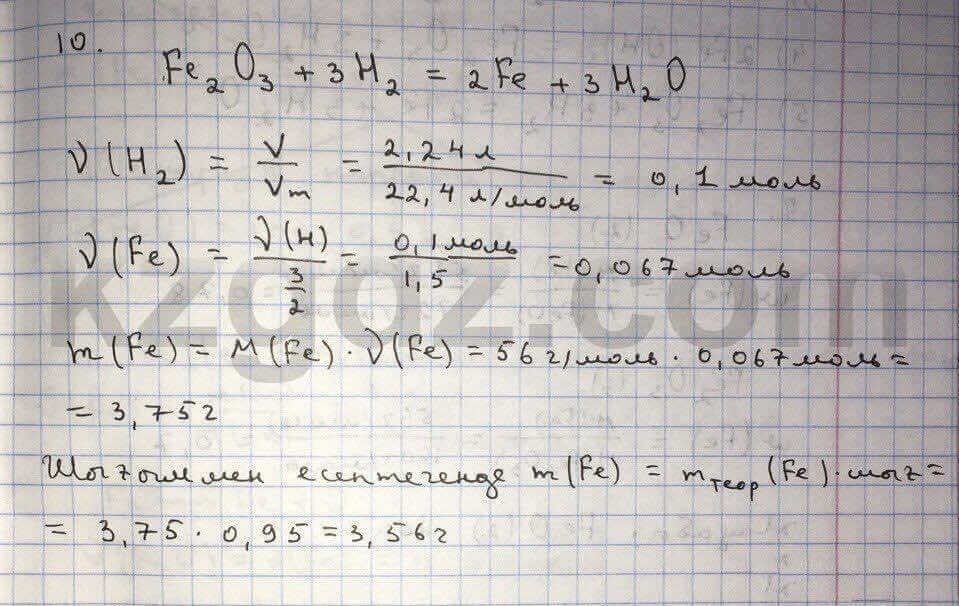 10.
Fe₂O₃ + 3H₂ = 2Fe + 3H₂O
ν(H₂) = V/Vm = 2,24л/22,4л/моль = 0,1моль
ν(Fe) = ν(H)/(3/2) = 0,1моль/1,5 = 0,067моль
m(Fe) = M(Fe)·ν(Fe) = 56г/моль · 0,067моль =
= 3,75г
Шығыммен есептегенде m(Fe) = mтеор(Fe)·шығ =
= 3,75 · 0,95 = 3,56г
kzgdz.com